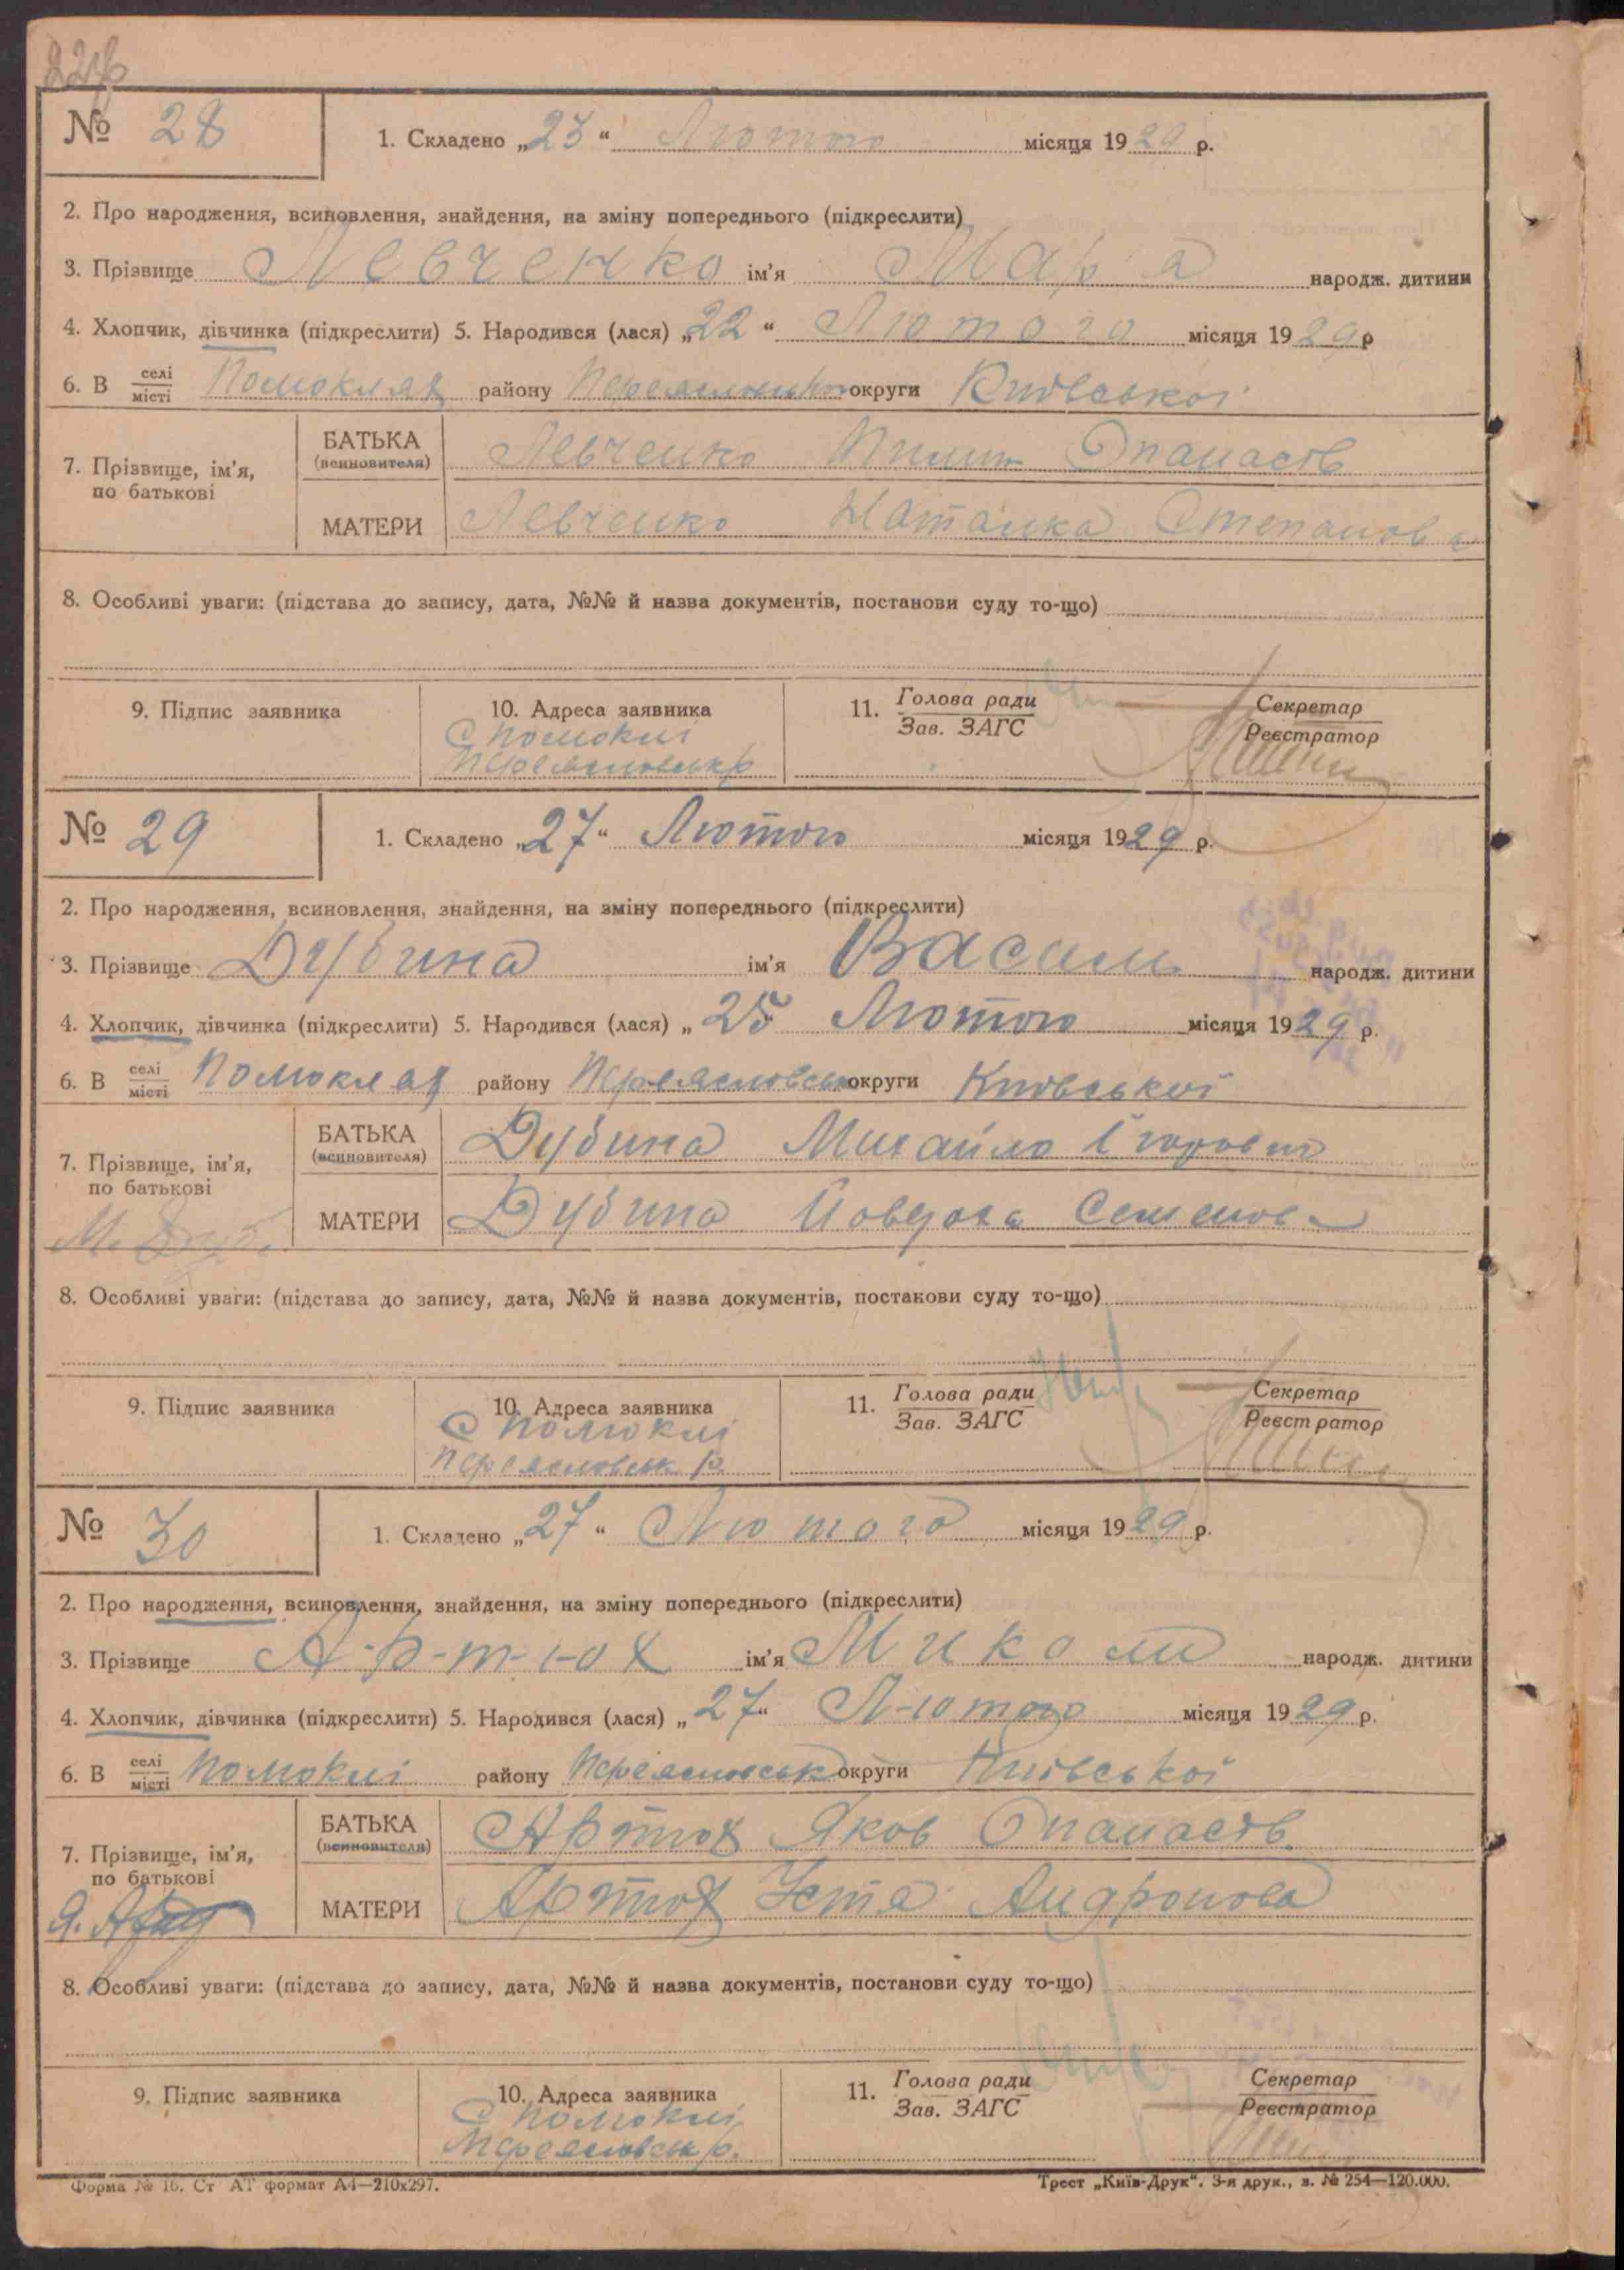 № 28
1. Складено „23“ Лютого місяця 1929 р.
2. Про народження, всиновлення, знайдення, на зміну попереднього (підкреслити)
3. Прізвище Левченко ім'я Мар'а народж. дитини
4. Хлопчик, дівчинка (підкреслити) 5. Народився (лася) „22“ Лютого місяця 1929 р
6. В селі місті Помоклях району округи Київської
7. Прізвище, ім'я, по батькові
БАТЬКА (всиновителя) Левченко Пилип Опанасів
МАТЕРИ Левченко Наталка Степанова
8. Особливі уваги: (підстава до запису, дата, №№ й назва документів, постанови суду то-що)
9. Підпис заявника
10. Адреса заявника
С Помоклі
Переяславськ р
11. Голова ради
Зав. ЗАГС
Секретар
Реєстратор
№ 29
1. Складено „27“ Лютого місяця 1929 р.
2. Про народження, всиновлення, знайдення, на зміну попереднього (підкреслити)
3. Прізвище Дубина ім'я Василь народж. дитини
4. Хлопчик, дівчинка (підкреслити) 5. Народився (лася) „25 Лютого місяця 1929 р.
6. В селі місті Помоклях району Переясловськ округи Київської
7. Прізвище, ім'я, по батькові
БАТЬКА (всиновителя) Дубина Михайло
МАТЕРИ Дубина Семенова
8. Особливі уваги: (підстава до запису, дата, №№ й назва документів, постакови суду то-що)
9. Підпис заявника
10. Адреса заявника
С Помоклі
Переясловськ р.
11. Голова ради
Зав. ЗАГС
Секретар
Реєстратор
№ 30
1. Складено „27“ Лютого місяця 1929 р.
2. Про народження, всиновлення, знайдення, на зміну попереднього (підкреслити)
3. Прізвище А-р-т-ю х ім'я Микола народж. дитини
4. Хлопчик, дівчинка (підкреслити) 5. Народився (лася) „27“ Лютого місяця 1929 р.
6. В селі місті Помоклі району Переясловськ округи Київської
7. Прізвище, ім'я, по батькові
БАТЬКА (всиновителя) Артюх Яков Опанасів
МАТЕРИ Артюх Устя Андронова
8. Особливі уваги: (підстава до запису, дата, №№ й назва документів, постанови суду то-що)
9. Підпис заявника
10. Адреса заявника
С Помоклі
Переясловськ р.
11. Голова ради
Зав. ЗАГС
Секретар
Реєстратор
Форма № 16. Ст АТ формат А4—210х297.
Трест „Київ-Друк“. 3-я друк., з. № 254—120.000.